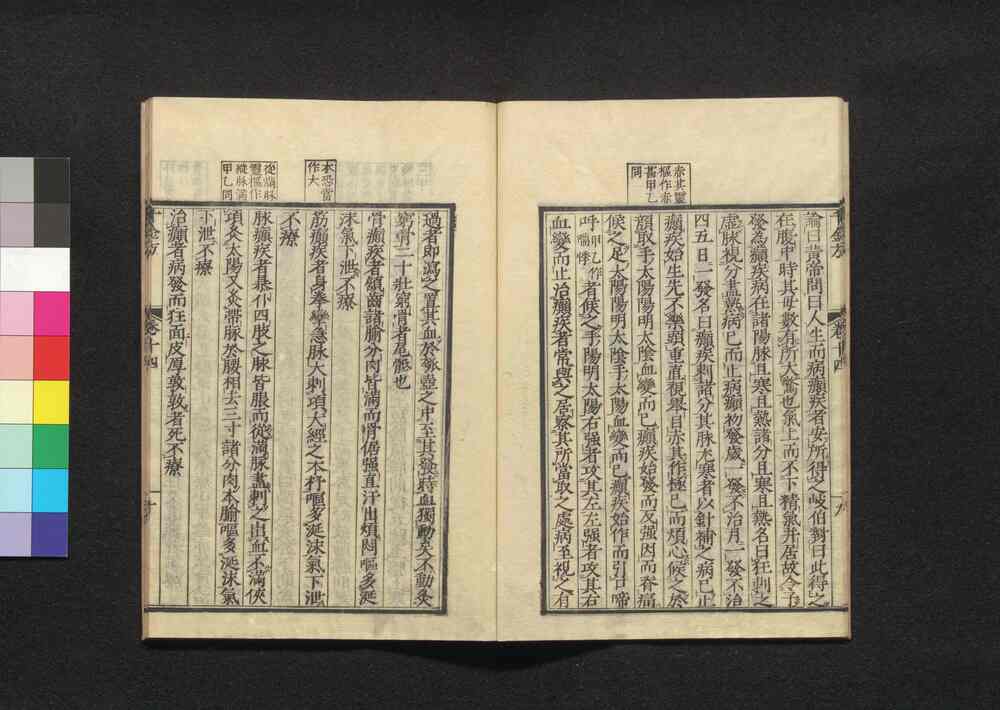 赤其靈
樞作赤
甚甲乙
同
論曰黃帝問曰人生而病癲疾者安所得之岐伯對曰此得之
在腹中時其母數有所大驚也氣上而不下精氣并居故令子
發為癲疾病在諸陽脉且寒且熱諸分且寒且熱名曰狂刺之
虛脉視分盡熱病已而止病癲初發歲一發不治月一發不治
四五日一發名曰癲疾刺諸分其脉尤寒者以針補之病已止
癲疾始生先不樂頭重直視舉目赤其作極已而煩心候之於
顏取手太陽陽明太陰血變而已癲疾始發而反强因而脊痛
候之足太陽陽明太陰手太陽血變而已癲疾始作而引口啼
呼甲乙作喘悸者候之手陽明太陽右强者攻其左左强者攻其右
血變而止治癲疾者常與之居察其所當取之處病至視之有
千金方
卷十四
九
本恐當
作大
從滿脉
靈樞作
縱脉滿
甲乙同
過者即瀉之置其血於瓠壺之中至其發時血獨動矣不動灸
窮骨二十壯窮骨者尾骶也
骨癲疾者顑齒諸腧分肉皆滿而骨倨强直汗出煩悶嘔多涎
沫氣下泄不療
筋癲疾者身拳攣急脉大刺項大經之本杼嘔多涎沫氣下泄
不療
脉癲疾者暴仆四肢之脉皆脹而從滿脉盡刺之出血不滿俠
項灸太陽又灸帶脉於腰相去三寸諸分肉本腧嘔多涎沫氣
下泄不療
治癲者病發而狂面皮厚敦敦者死不療
千金方
卷十四
十